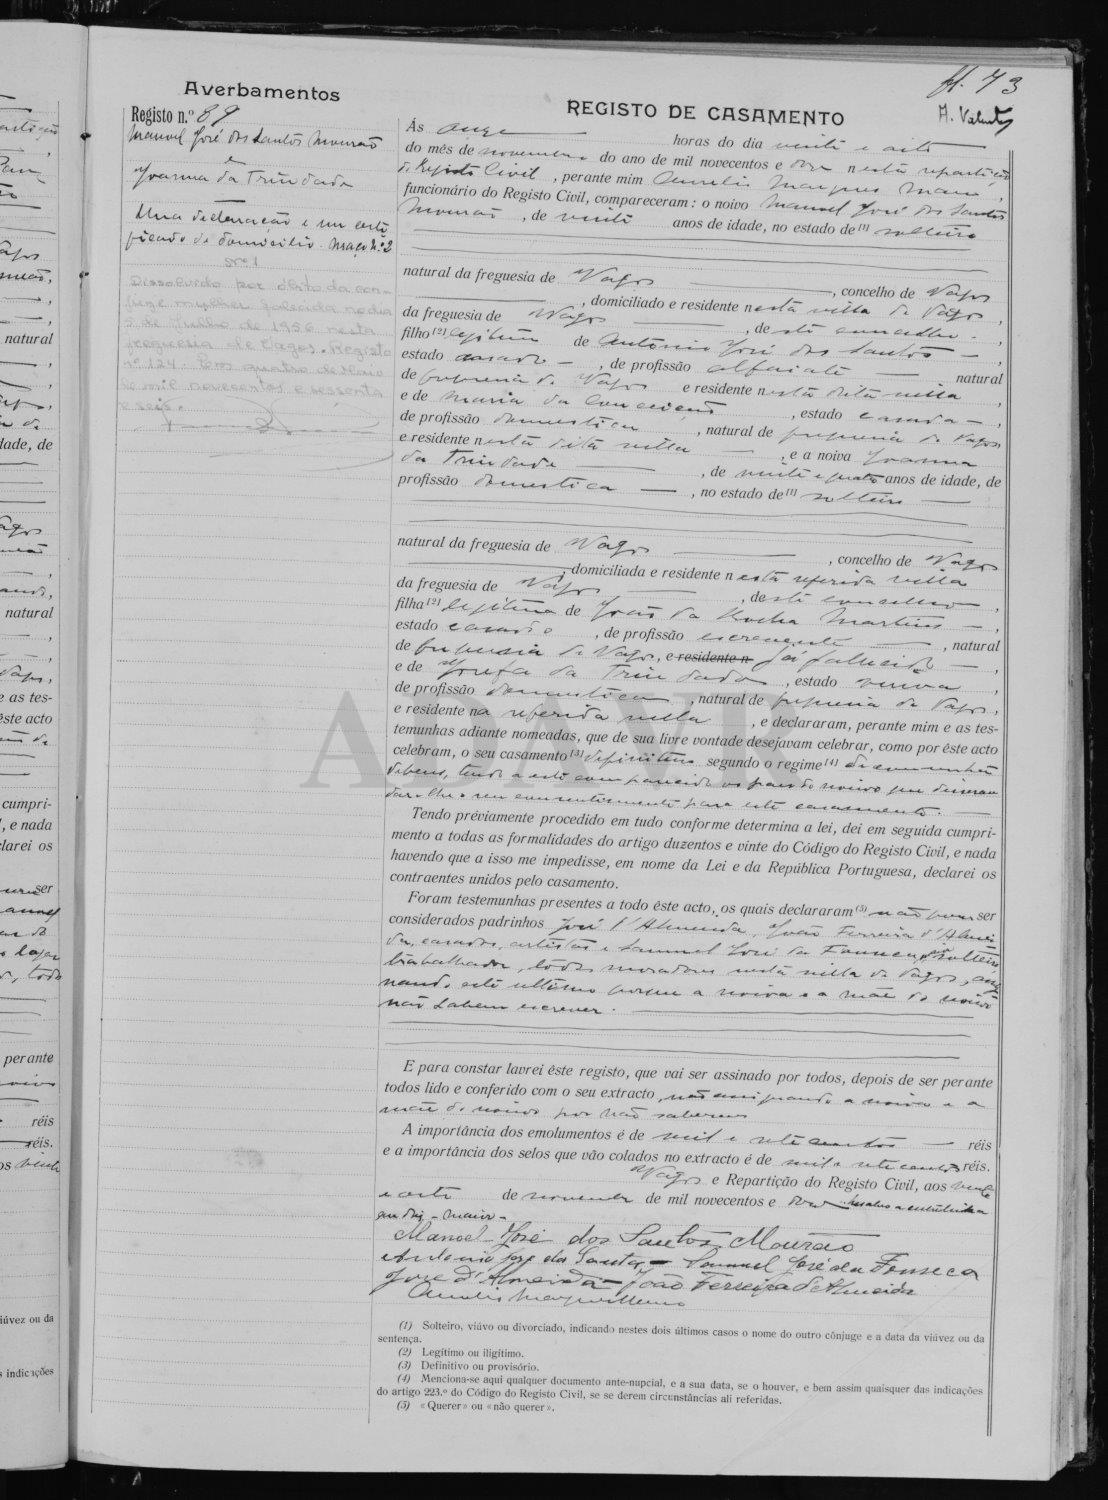 fl. 73
A. Valente
Averbamentos
Registo n.º 89
Manoel José dos Santos Mourão
e
Joanna da Trindade
Uma declaração e um certi-
ficado de domicilio. Maço n.º 2
Nº 1
Dissolvido por óbito da con-
juge mulher falecida no dia
5 de Julho de 1956 nesta
freguesia de Vagos. Registo
nº 124. Em quatro de Maio
de mil novecentos e sessenta
e seis.
REGISTO DE CASAMENTO
Ás onze horas do dia vinte e oito
do mês de novembro do ano de mil novecentos e onze nesta repartição
do Registo Civil, perante mim Aurelio Marques Mano,
funcionário do Registo Civil, compareceram: o noivo Manuel José dos Santos
Mourão, de vinte anos de idade, no estado de (1) solteiro
natural da freguesia de Vagos, concelho de Vagos
, domiciliado e residente nesta villa de Vagos,
da freguesia de Vagos, deste concelho,
filho (2) legitimo de António José dos Santos,
estado casado, de profissão alfaiate natural
de freguesia de Vagos e residente nesta dita villa,
e de Maria da Conceição, estado casada,
de profissão domestica, natural de freguesia de Vagos
e residente nesta dita villa, e a noiva Joanna
da Trindade, de vinte e quatro anos de idade, de
profissão domestica, no estado de (1) solteira
natural da freguesia de Vagos, concelho de Vagos
, domiciliada e residente n esta referida villa
da freguesia de Vagos, deste concelho,
filha (2) legitima de João da Rocha Martins,
estado casado, de profissão escrevente, natural
de freguesia de Vagos, e residente n já falecido,
e de Josefa da Trindade, estado viuva,
de profissão domestica, natural de freguesia de Vagos,
e residente na referida villa, e declararam, perante mim e as tes-
temunhas adiante nomeadas, que de sua livre vontade desejavam celebrar, como por êste acto
celebram, o seu casamento (3) definitivo segundo o regime (4) de comunhão
de bens, tendo a este comparecido os pais do noivo que disseram
dar-lhe o seu consentimento para este casamento.
Tendo préviamente procedido em tudo conforme determina a lei, dei em seguida cumpri-
mento a todas as formalidades do artigo duzentos e vinte do Código do Registo Civil, e nada
havendo que a isso me impedisse, em nome da Lei e da República Portuguesa, declarei os
contraentes unidos pelo casamento.
Foram testemunhas presentes a todo êste acto, os quais declararam (5) não querer ser
considerados padrinhos José d'Almeida, João Ferreira d'Almei-
da, casados, artistas e Samuel José da Fonseca, solteiro
trabalhador, todos moradores nesta villa de Vagos, assi
nando este ultimo porque a noiva e a mãe do noivo
não sabem escrever.
E para constar lavrei êste registo, que vai ser assinado por todos, depois de ser perante
todos lido e conferido com o seu extracto, não assignando a noiva e a
mãe do noivo por não saberem
A importância dos emolumentos é de mil e sete centos réis
e a importância dos selos que vão colados no extracto é de mil e sete centos réis.
Vagos e Repartição do Registo Civil, aos vinte
e oito de novembro de mil novecentos e onze. Resalvo a entrelinha
que diz - maior -
Manoel José dos Santos Mourão
Antonio Jose dos Santos - Samuel José da Fonseca
Jose d'Almeida - João Ferreira d'Almeida
(1) Solteiro, viúvo ou divorciado, indicando nestes dois últimos casos o nome do outro cônjuge e a data da viúvez ou da
sentença.
(2) Legítimo ou iligítimo.
(3) Definitivo ou provisório.
(4) Menciona-se aqui qualquer documento ante-nupcial, e a sua data, se o houver, e bem assim quaisquer das indicações
do artigo 223.º do Código do Registo Civil, se se derem circunstâncias ali referidas.
(5) «Querer» ou «não querer».